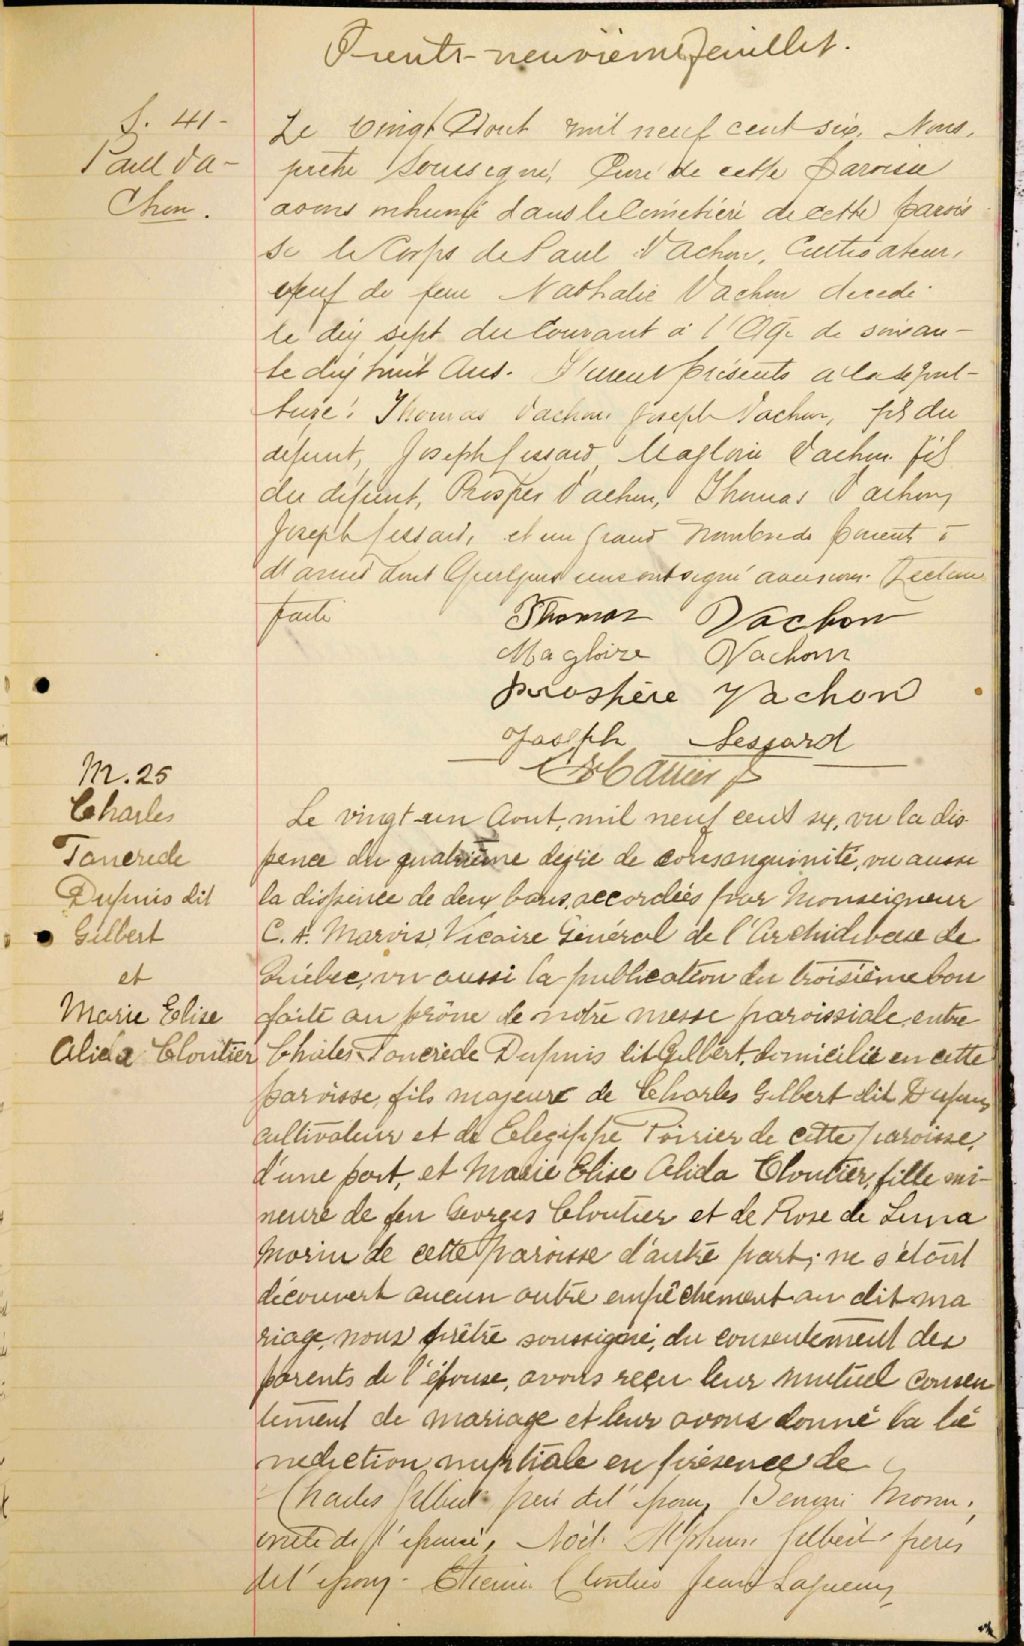 Trente-neuvième feuillet.
S. 41-
Paul Va-
chon.
Le vingt Août mil neuf cent six, Nous,
prêtre soussigné, Curé de cette paroisse
avons inhumé dans le Cimetière de cette parois
se le Corps de Paul Vachon, Cultivateur,
veuf de feue Nathalie Vachon décédé
le dix sept du Courant à l'Age de soixan-
te dix huit Ans. Furent présents à la sépul-
ture: Thomas Vachon, Joseph Vachon, fils du
défunt, Joseph Lessard, Magloire Vachon fils
du défunt, Prosper Vachon, Thomas Vachon,
Joseph Lessard, et un grand nombre de parents &
d'amis dont quelques uns ont signé avec nous. Lecture
faite
Thomas Vachon
Magloire Vachon
prospère Vachon
Joseph Lessard
M. 25
Charles
Tancrède
Dupuis dit
Gilbert
et
Marie Elise
Alida Cloutier
Le vingt-un Août, mil neuf cent six, vu la dis-
pence du quatrième degré de consanguinité, vu aussi
la dispence de deux bans, accordées par Monseigneur
C. A. Marois, Vicaire Général de l'Archidiocèse de
Québec, vu aussi la publication du troisième ban
faite au prône de notre messe paroissiale, entre
Charles Tancrède Dupuis dit Gilbert, domicilié en cette
paroisse, fils majeur de Charles Gilbert dit Dupuis
cultivateur et de Poirier de cette paroisse,
d'une part, et Marie Elise Alida Cloutier, fille mi-
neure de feu Georges Cloutier et de Rose de Lima
Morin de cette paroisse d'autre part; ne s'étant
découvert aucun autre empêchement au dit ma
riage, nous prêtre soussigné, du consentement des
parents de l'épouse, avons reçu leur mutuel consen
tement de mariage et leur avons donné la bé
nédiction nuptiale en présence de
Charles Gilbert père de l'époux, Morin,
oncle de l'épouse, Noël, Alphonse Gilbert frères
de l'époux. Cloutier Jean